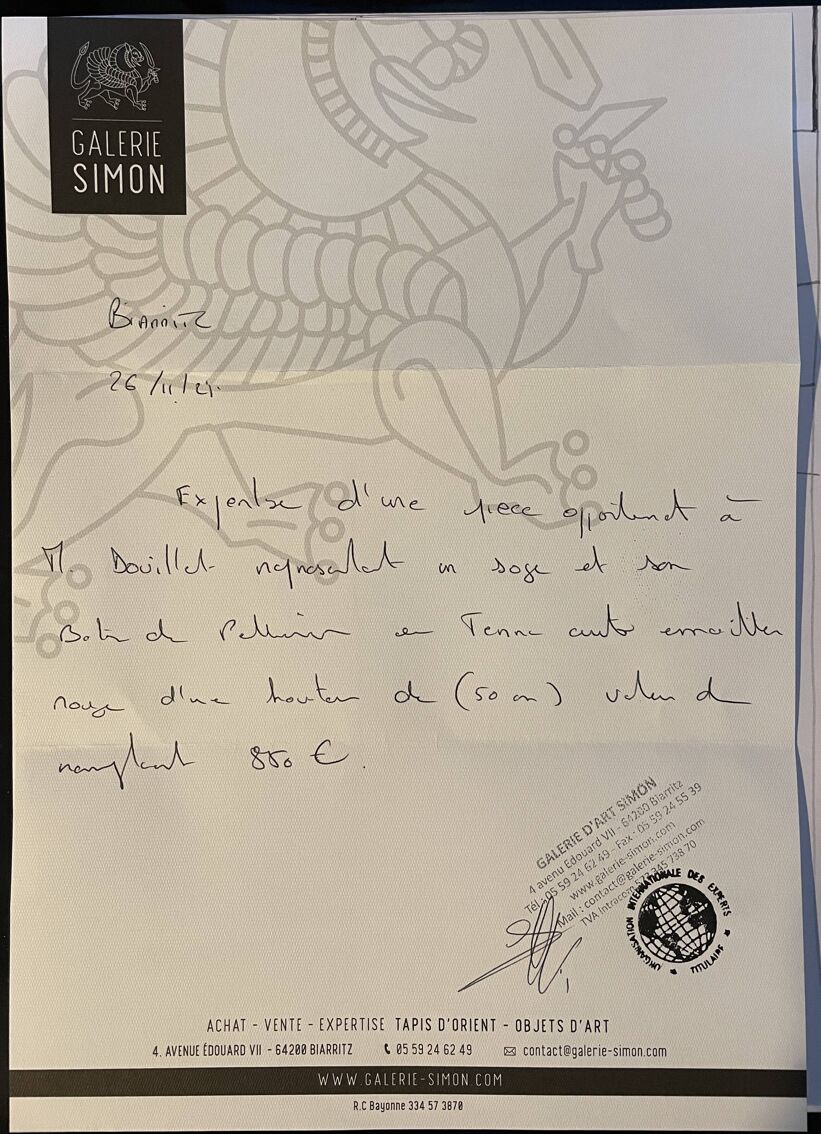 GALERIE
SIMON
Biarritz
26/11/21.
Expertise d'une piece appartenant à
M. Douillet représentant un sage et son
Baton de Pellerin en Terre cuite emailler
rouge d'une hauteur de (50 cm) valeur de
remplacant 850 €.
GALERIE D'ART SIMON
4 avenu Edouard VII - 64200 Biarritz
Tél. 05 59 24 62 49 - Fax : 05 59 24 55 39
www.galerie-simon.com
Mail : contact@galerie-simon.com
TVA Intracom 345 738 70
ORGANISATION INTERNATIONALE DES EXPERTS
TITULAIRE
ACHAT - VENTE - EXPERTISE TAPIS D'ORIENT - OBJETS D'ART
4. AVENUE ÉDOUARD VII - 64200 BIARRITZ 05 59 24 62 49 contact@galerie-simon.com
WWW.GALERIE-SIMON.COM
R.C Bayonne 334 57 3870